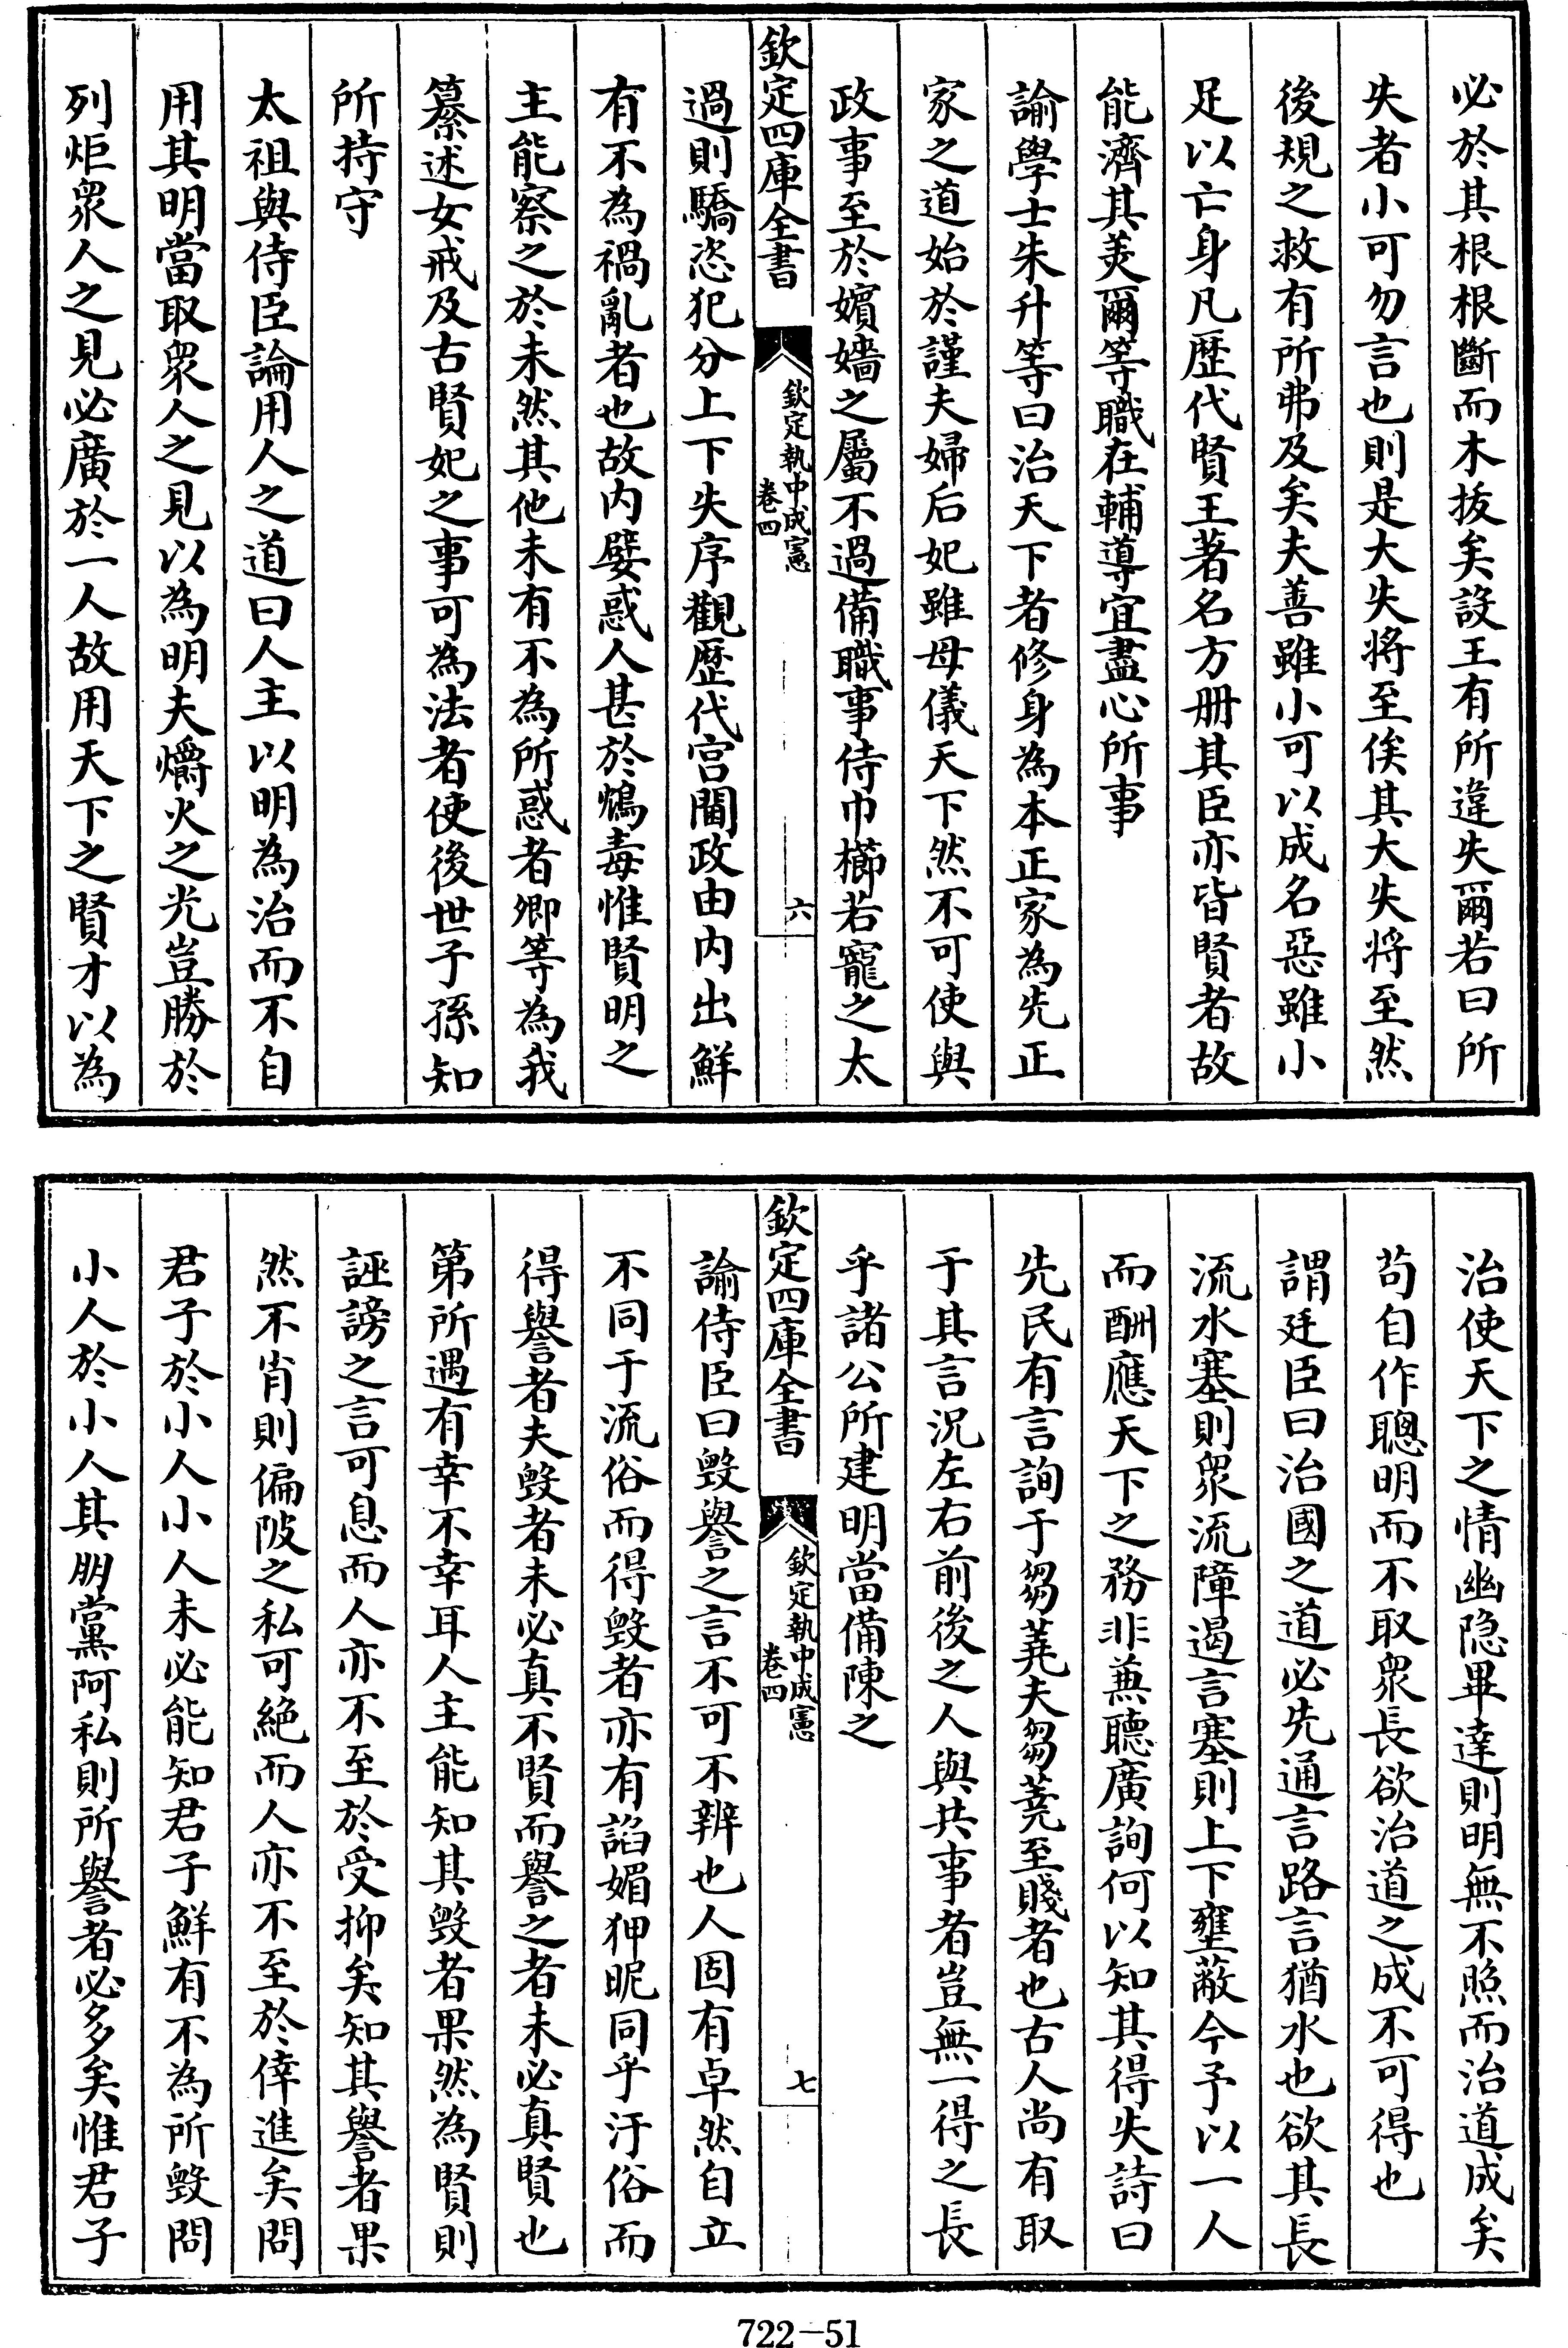 必於其根根斷而木拔矣設王有所違失爾若曰所
失者小可勿言也則是大失將至俟其大失將至然
後規之救有所弗及矣夫善雖小可以成名惡雖小
足以亡身凡歴代賢王著名方冊其臣亦皆賢者故
能濟其美爾等職在輔導宜盡心所事
諭學士朱升等曰治天下者修身為本正家為先正
家之道始於謹夫婦后妃雖母儀天下然不可使與
政事至於嬪嬙之屬不過備職事侍巾櫛若寵之太
欽定四庫全書
欽定執中成憲
卷四
六
過則驕恣犯分上下失序觀歴代宫閫政由内出鮮
有不為禍亂者也故内嬖惑人甚於鴆毒惟賢明之
主能察之於未然其他未有不為所惑者卿等為我
纂述女戒及古賢妃之事可為法者使後世子孫知
所持守
太祖與侍臣論用人之道曰人主以明為治而不自
用其明當取衆人之見以為明夫爝火之光豈勝於
列炬衆人之見必廣於一人故用天下之賢才以為
治使天下之情幽隐畢達則明無不照而治道成矣
苟自作聰明而不取衆長欲治道之成不可得也
謂廷臣曰治國之道必先通言路言猶水也欲其長
流水塞則衆流障遏言塞則上下壅蔽今予以一人
而酬應天下之務非兼聽廣詢何以知其得失詩曰
先民有言詢于芻蕘夫芻蕘至賤者也古人尚有取
于其言況左右前後之人與共事者豈無一得之長
乎諸公所建明當備陳之
欽定四庫全書
欽定執中成憲
卷四
七
諭侍臣曰毀譽之言不可不辨也人固有卓然自立
不同于流俗而得毀者亦有諂媚狎昵同乎汙俗而
得譽者夫毀者未必真不賢而譽之者未必真賢也
第所遇有幸不幸耳人主能知其毀者果然為賢則
誣謗之言可息而人亦不至於受抑矣知其譽者果
然不肖則偏陂之私可絶而人亦不至於倖進矣問
君子於小人小人未必能知君子鮮有不為所毀問
小人於小人其朋黨阿私則所譽者必多矣惟君子
722-51